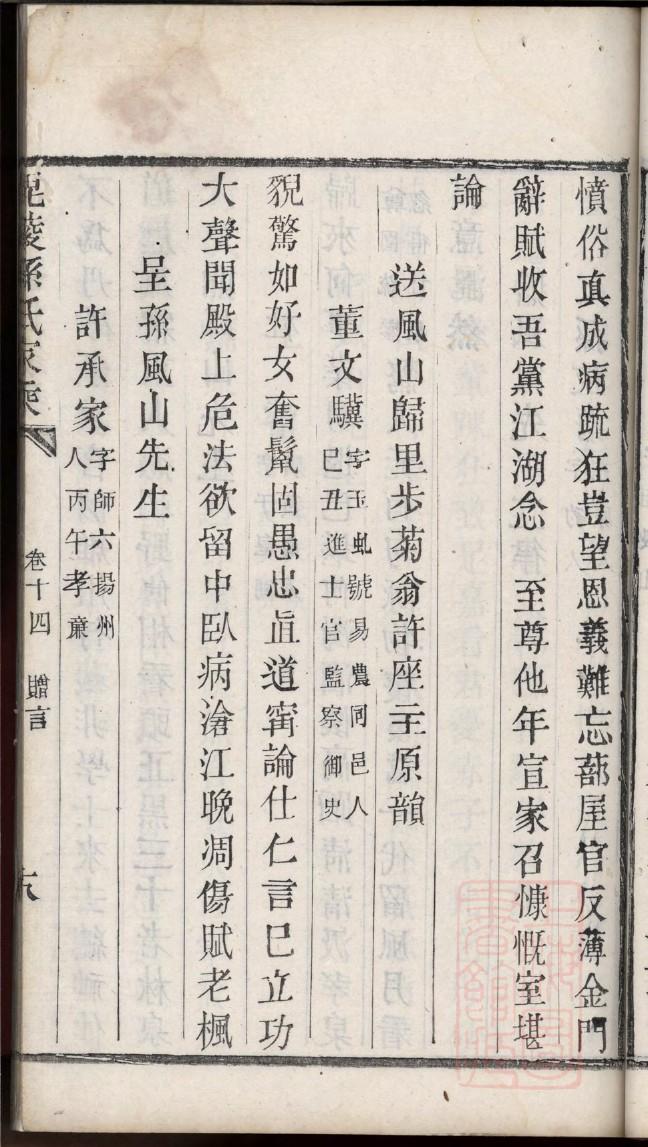 憤俗真成病疏狂豈望恩義難忘蔀屋官反薄金門
辭賦收吾黨江湖念　至尊他年宣家召慷慨室堪
論
送風山歸里步菊翁許座主原韻
董文驥字玉虬號易農同邑人
己丑進士官監察御史
貌驚如好女奮鬣固愚忠直道甯論仕仁言已立功
大聲聞殿上危法欲留中臥病滄江晚凋傷賦老楓
呈孫風山先生
許承家字師六揚州
人丙午孝廉
毘陵孫氏家乘
卷十四　贈言
六